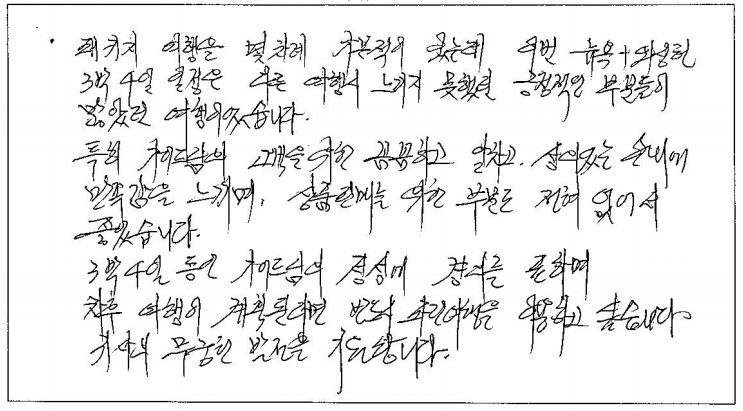 패키지 여행을 몇차례 가본적이 있는데 이번 뉴욕+워싱턴
3박4일 일정은 다른 여행서 느끼지 못했던 긍정적인 부분들이
많았던 여행이었습니다.
특히 가이드님의 고객을 위한 꼼꼼하고 알차고, 살아있는 안내에
만족감을 느끼며, 상품판매를 위한 부분도 전혀 없어서
좋았습니다.
3박4일 동안 가이드님의 정성에 경의를 표하며
차후 여행이 계획된다면 반드시 여행을 이용하고 싶습니다
귀사의 무궁한 발전을 기도합니다.